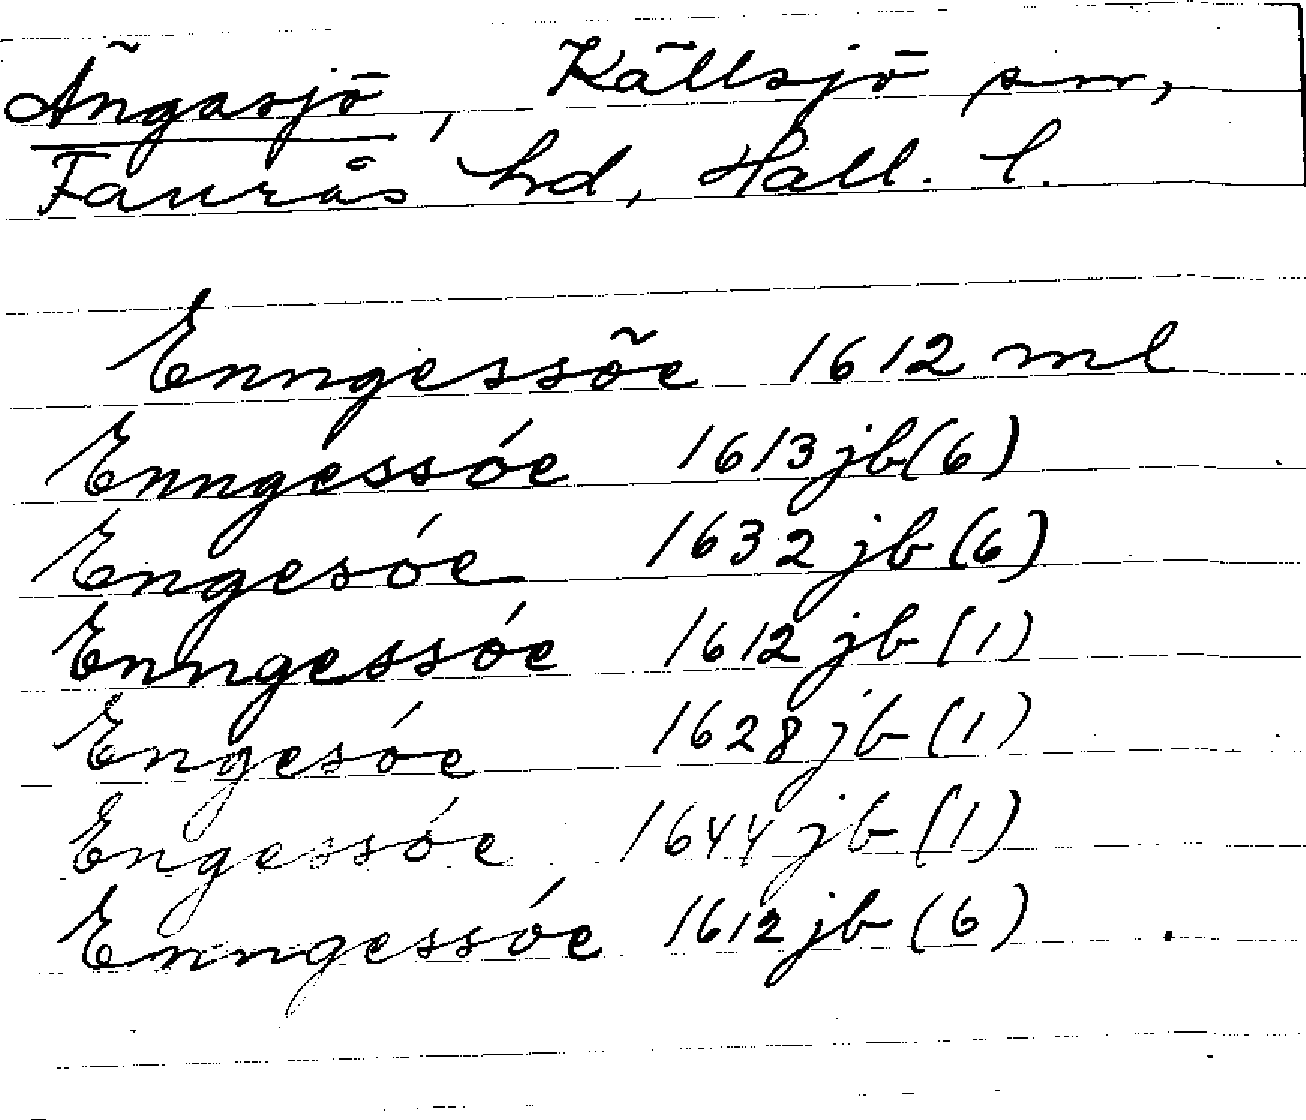 Ängasjö, Källsjö sn,
Faurås hd, Hall. l.
Enngessöe 1612 ml
Enngessóe 1613 jb(6)
Engesóe 1632 jb(6)
Enngessóe 1612 jb(1)
Engesóe 1628 jb(1)
Engessóe 1644 jb(1)
Enngessóe 1612 jb(6)